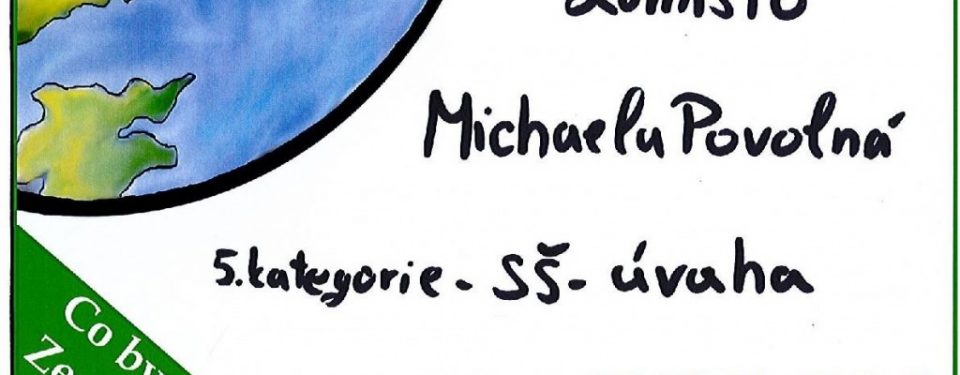 Michaela Povolná
5. kategorie - SŠ - úvaha
Co by